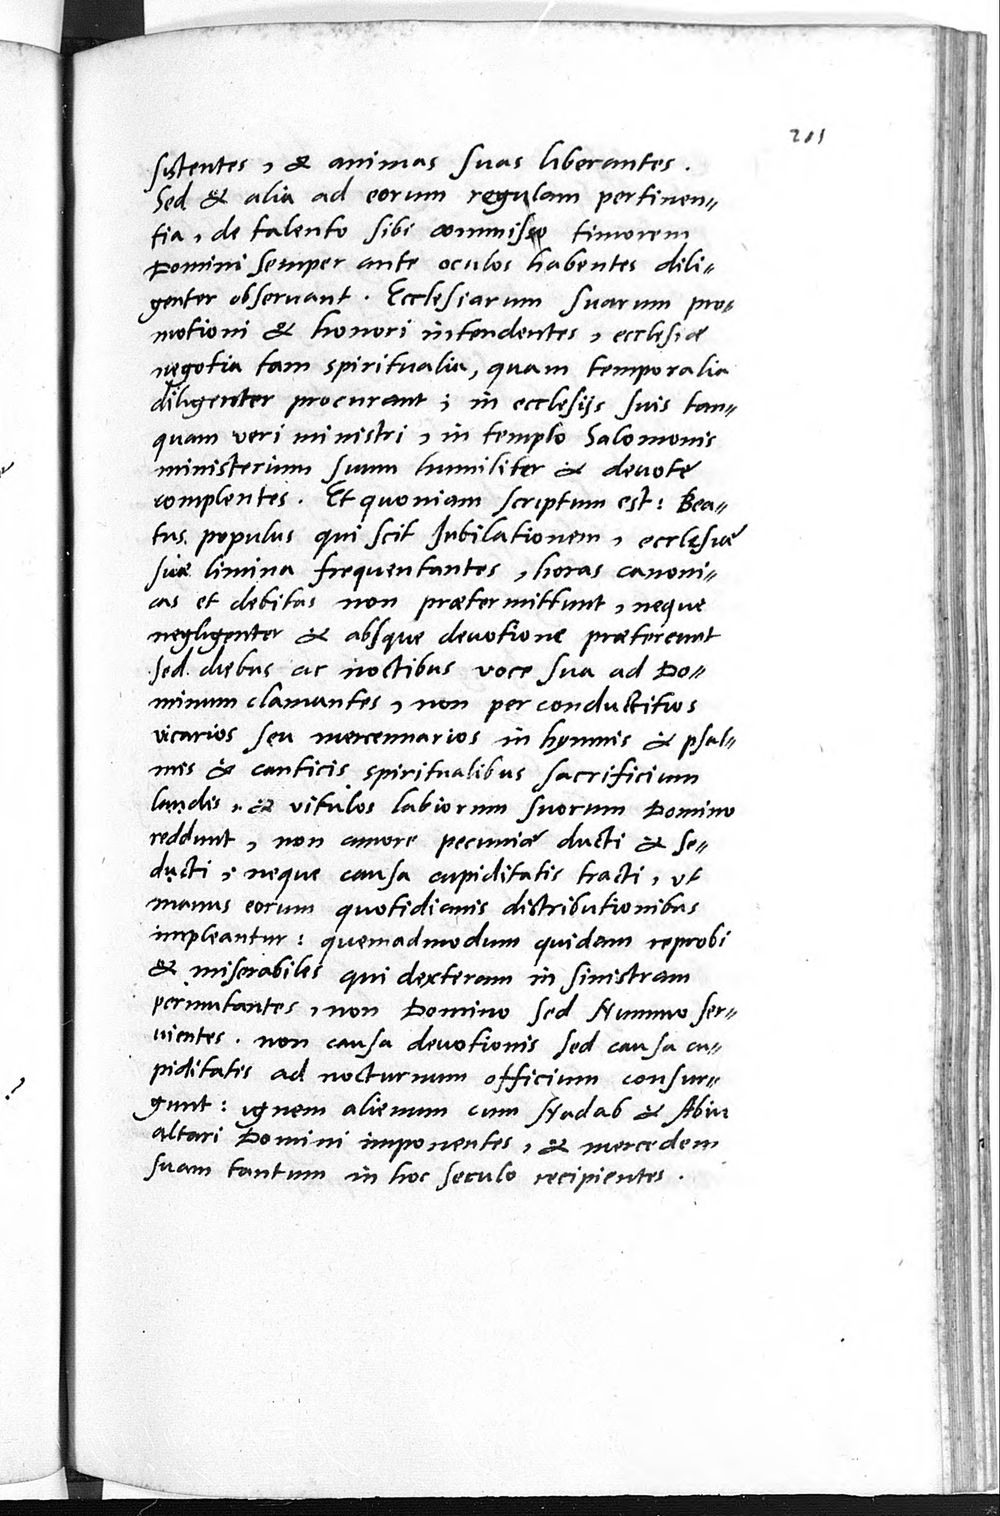 211
sistentes, & animas suas liberantes.
Sed & alia ad eorum regulam pertinen=
tia, de talento sibi commisso timorem
Domini semper ante oculos habentes dili=
genter obseruant. Ecclesiarum suarum pro=
motioni & honori intendentes, ecclesiæ
negotia tam spiritualia, quam temporalia
diligenter procurant; in ecclesijs suis tan=
quam veri ministri, in templo Salomonis
ministerium suum humiliter & deuote
complentes. Et quoniam scriptum est: Bea=
tus populus qui scit Jubilationem, ecclesiæ
suæ limina frequentantes, horas canoni=
cas et debitas non prætermittunt, neque
negligenter & absque deuotione prætereunt
sed diebus ac noctibus voce sua ad Do=
minum clamantes, non per conductitios
vicarios seu mercennarios in hymnis & psal=
mis & canticis spiritualibus sacrificium
laudis, & vitulos labiorum suorum Domino
reddunt, non amore pecuniæ ducti & se=
ducti; neque causa cupiditatis tracti, vt
manus eorum quotidianis distributionibus
impleantur: quemadmodum quidam reprobi
& miserabiles qui dexteram in sinistram
permutantes, non Domino sed Nummo ser=
uientes. non causa deuotionis sed causa cu=
piditatis ad nocturnum officium consur=
gunt: ignem alienum cum Nadab & Abiu
altari Domini imponentes, & mercedem
suam tantum in hoc seculo recipientes.